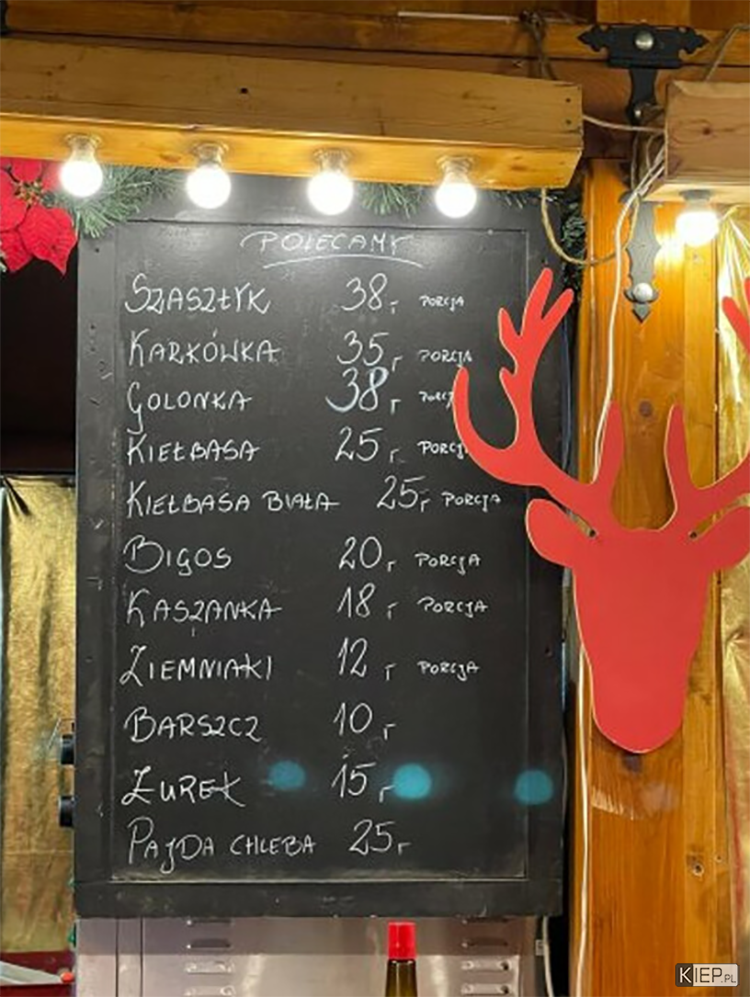 POLECAMY
SZASZŁYK 38,- PORCJA
KARKÓWKA 35,- PORCJA
GOLONKA 38,-
KIEŁBASA 25,-
KIEŁBASA BIAŁA 25,- PORCJA
BIGOS 20,- PORCJA
KASZANKA 18,- PORCJA
ZIEMNIAKI 12,- PORCJA
BARSZCZ 10,-
ŻUREK 15,-
PAJDA CHLEBA 25,-
KIEP.PL